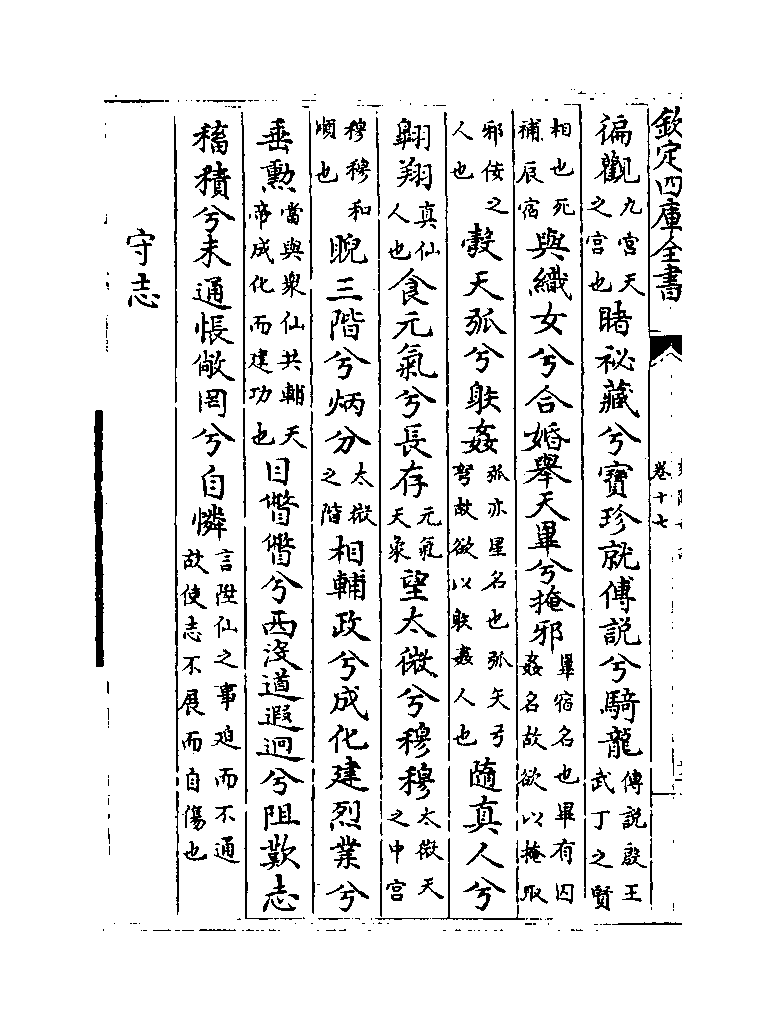 欽定四庫全書
卷十七
徧觀九宮天之宮也睹祕藏兮寶珍就傅說兮騎龍傅說殷王武丁之賢
相也死補辰宿與織女兮合婚舉天畢兮掩邪畢宿名也畢有囚姦名故欲以掩取
邪佞之人也彀天弧兮䠶姦弧亦星名也弧矢弓弩故欲以䠶姦人也隨真人兮
翺翔真仙人也食元氣兮長存元氣天氣望太微兮穆穆太微天之中宮
穆穆和順也睨三階兮炳分太微之階相輔政兮成化建烈業兮
垂勲當與衆仙共輔天帝成化而建功也目瞥瞥兮西沒道遐逈兮阻歎志
稸積兮未通悵敞罔兮自憐言陞仙之事迫而不通故使志不展而自傷也
守志